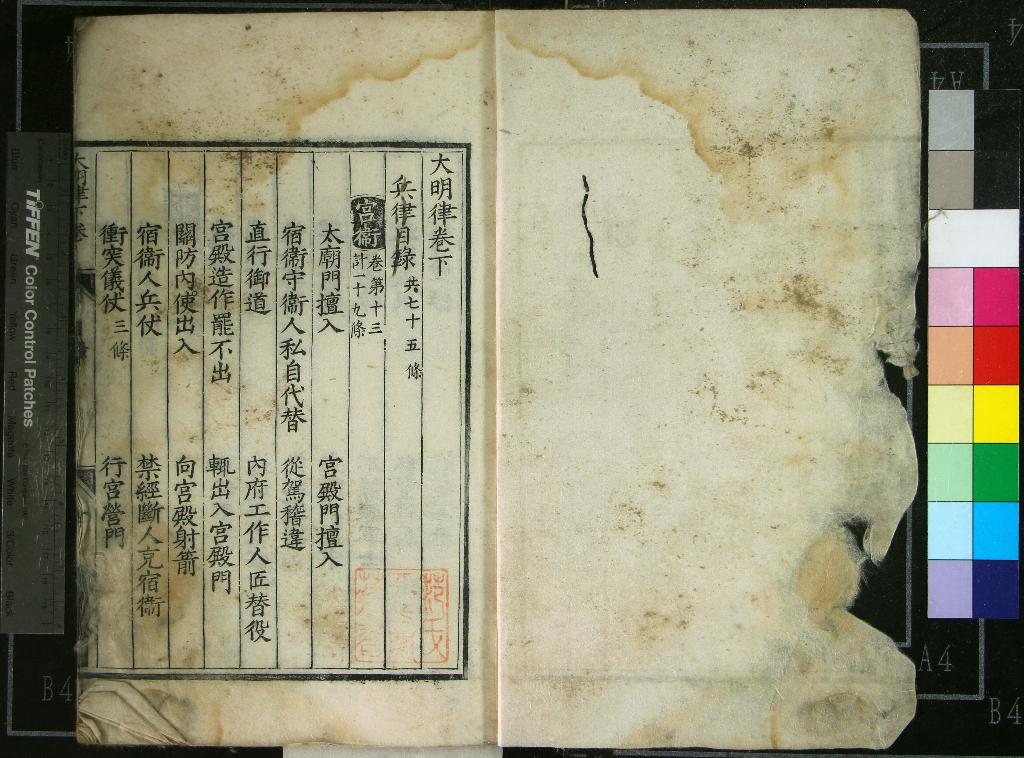 大明律卷下
兵律目錄 共七十五條
宮衞 卷第十三 計一十九條
太廟門擅入 宮殿門擅入
宿衞守衞人私自代替 從駕稽違
直行御道 內府工作人匠替役
宮殿造作罷不出 輒出入宮殿門
關防內使出入 向宮殿射箭
宿衞人兵仗 禁經斷人充宿衞
衝突儀仗 三條 行宮營門
TIFFEN Color Control Patches
A4
A4
B4
B4